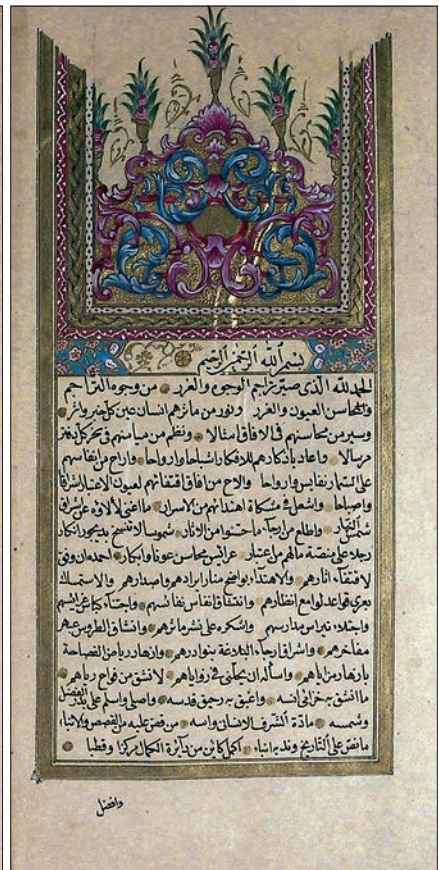 بسم الله الرحمن الرحيم
الحمد لله الذي صير تراجم الوجوه والغرر من وجوه التراجم
والمحاسن العيون والغرر ونور من مآثرهم انسان عين كل خبر واثر
وسير من محاسنهم في الافاق امثالا ونظم من
واعاد باذكارهم للافكار اشباحا وارواحا من انفاسهم
على نفايس وارواحا والاح من افاق اقتفائهم لعيون الاعتبار اشراقا
واصباحا واشعل في مشكاة اهتدائهم من الاسرار ما اغنى لألاؤه عن اشراق
شمس النهار واطلع من ارجاء ما حسنوا من الاثار شموسا لا تنسخ
رجلا على منصة مالهم من اعتبار عرائس محاسن عونا وابكار احمده ان وفق
لاقتفاء اثارهم والاهتداء بواضح منار ايرادهم واصدارهم والاستمساك
بعرى قواعد لوامع انظارهم وانتشاق انفاس نفائسهم واجتناء
واجتلاء نبراس مدارسهم واشكره على نشر مآثرهم وانتشاق الطروس عبير
مفاخرهم واشراق ارجاء البلاغة بنوادرهم وازهار ربا من الفصاحة
بازهار مزاياهم واسأله ان يحلني في زواياهم لانشق من فوائح رياهم
ما انشق به خزامى انسه واغبق به رحيق قدسه واصلي واسلم على بدر الفضل
وشمسه مادة الشرف الانسان واسه من قص عليه من القصص والانباء
ما نص على التاريخ وندبه انباء اكمل كائن من دائرة الكمال مركزا وقطبا
وافضل